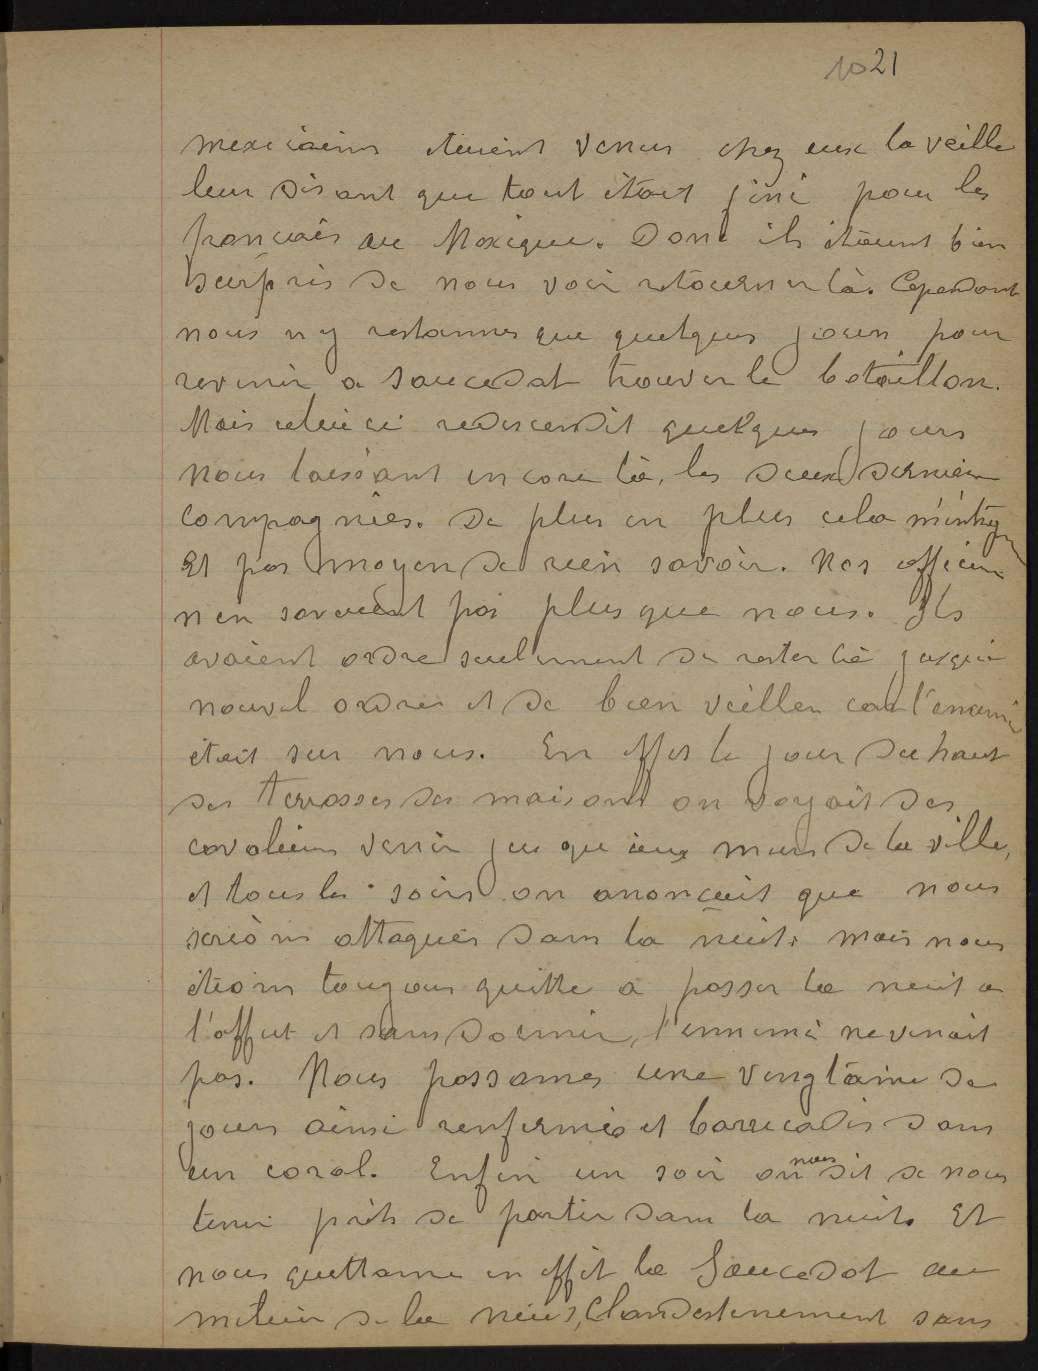 1021
mexicains étaient venus chez eux la veille
leur disant que tout était fini pour les
français au Mexique. Donc ils étaient bien
surpris de nous voir retourner là. Cependant
nous n'y restames que quelques jours pour
revenir a Saucedat trouver le bataillon.
Mais celui ci redescendit quelques jours
nous laissant encore là, les deux dernière
compagnies. De plus en plus cela m'intrig
Et pas moyen de rien savoir. Nos officiers
n'en savaient pas plus que nous. Ils
avaient ordre seulement de rester là jusqu'à
nouvel ordre et de bien veiller car l'énemi
était sur nous. En effet le jour du haut
des terrasses des maisons on voyait des
cavaliers venir ju qu'aux murs de la ville,
et tous les soirs on anonçait que nous
serions attaqués dans la nuit, mais nous
étions toujours quitte a passer la nuit a
l'affut et sans dormir, l'ennemi ne venait
pas. Nous passames une vingtaine de
jours ainsi renfermés et barricadés dans
un coral. Enfin un soir on nous dit de nous
tenir prêts de partir dans la nuit. Et
nous quittame en effet la Saucedat au
milieu de la nuit, Clandestinement sans